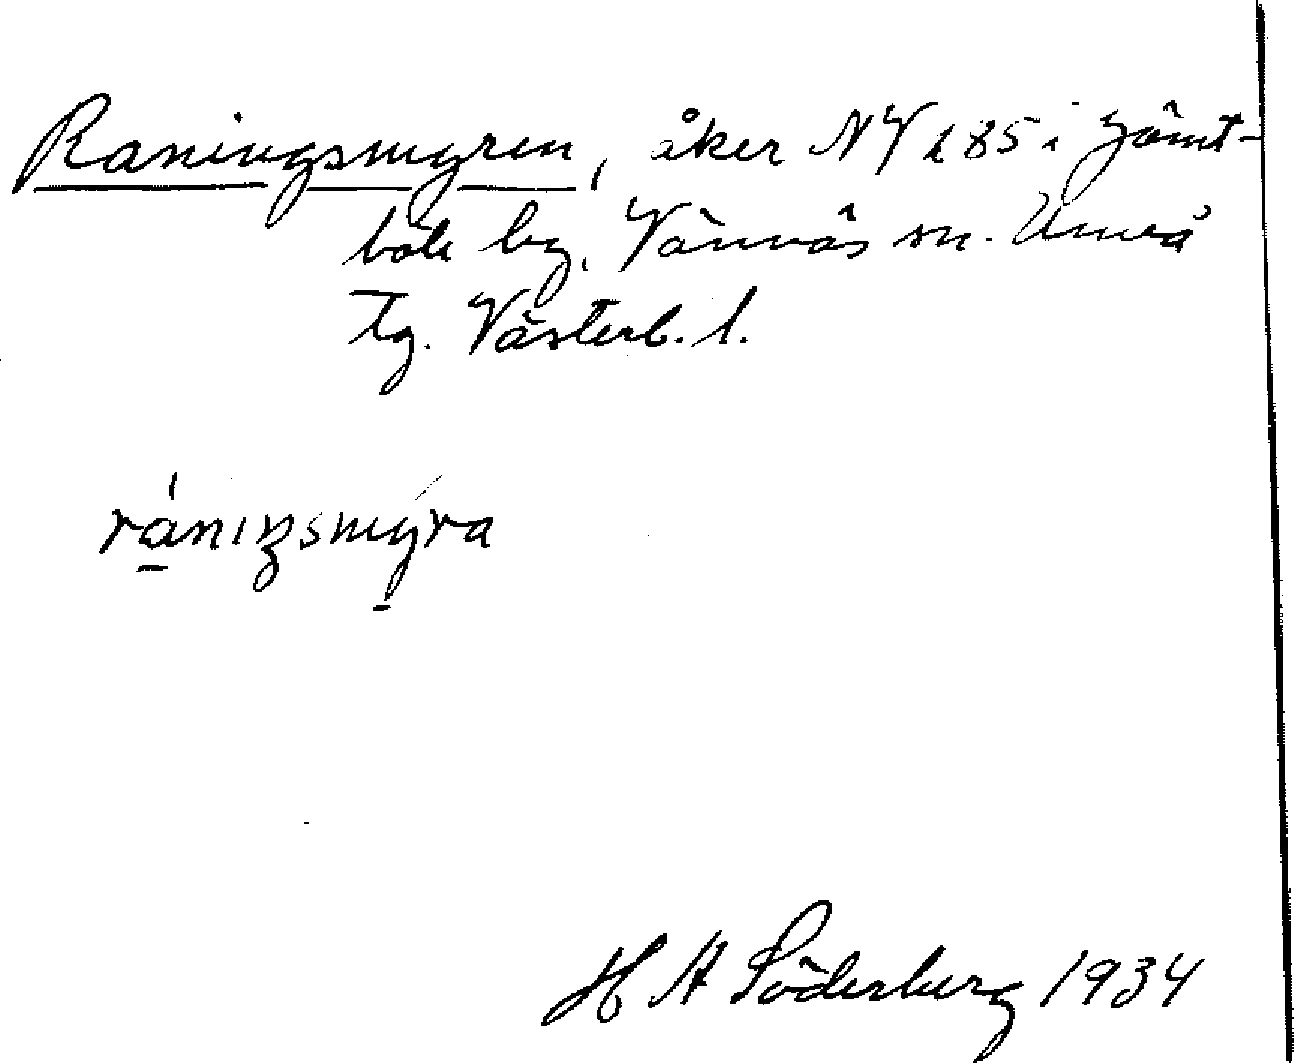 Raningsmyren, åker NV 185 i Jämt-
böle by, Vännäs sn. Umeå
tg. Västerb. l.
rániŋsmýra
H A Söderberg 1934